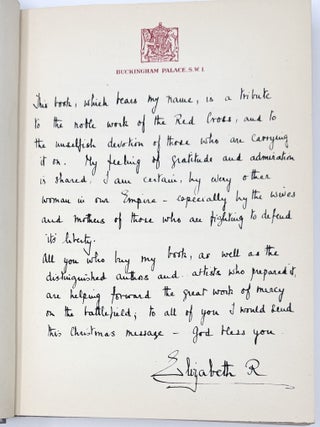 BUCKINGHAM PALACE. S.W.1.
This book, which bears my name, is a tribute
to the noble work of the Red Cross, and to
the unselfish devotion of those who are carrying
it on. My feeling of gratitude and admiration
is shared, I am certain, by every other
woman in our Empire - especially by the wives
and mothers of those who are fighting to defend
its liberty.
All you who buy my book, as well as the
distinguished authors and artists who prepared it,
are helping forward the great work of mercy
on the battlefield; to all of you I would send
this Christmas message - God bless you.
Elizabeth R